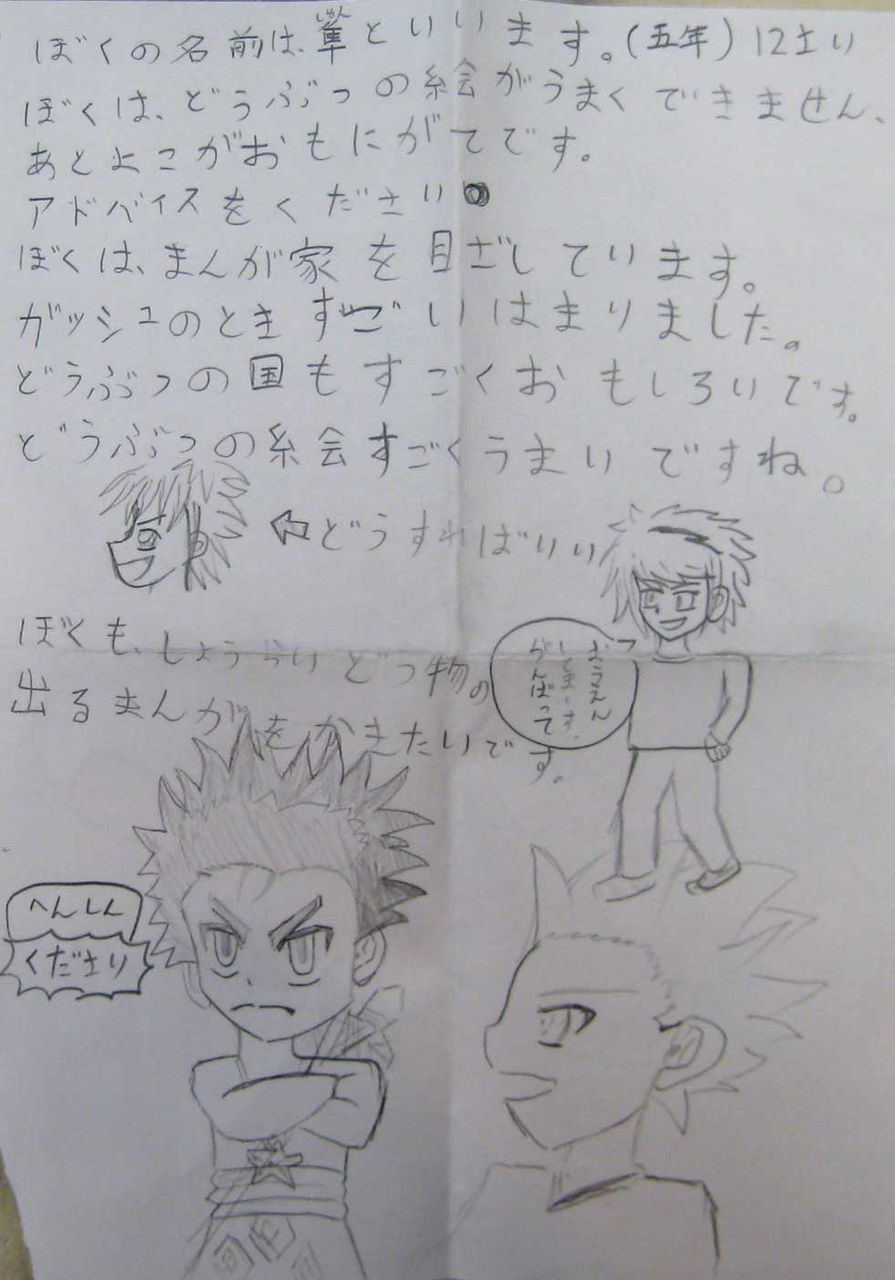 ぼくの名前は、輩といいます。(五年)12さい
ぼくは、どうぶつの絵がうまくできません、
あとよこがおもにがてです。
アドバイスをください
ぼくは、まんが家を目ざしています。
ガッシュのときすごいはまりました。
どうぶつの国もすごくおもしろいです。
どうぶつの絵すごくうまいですね。
←どうすればいい
ぼくも、しょうらいどうぶつ物の
出るまんがをかきたいです。
おうえん
してまーす。
がんばって
へんしん
ください